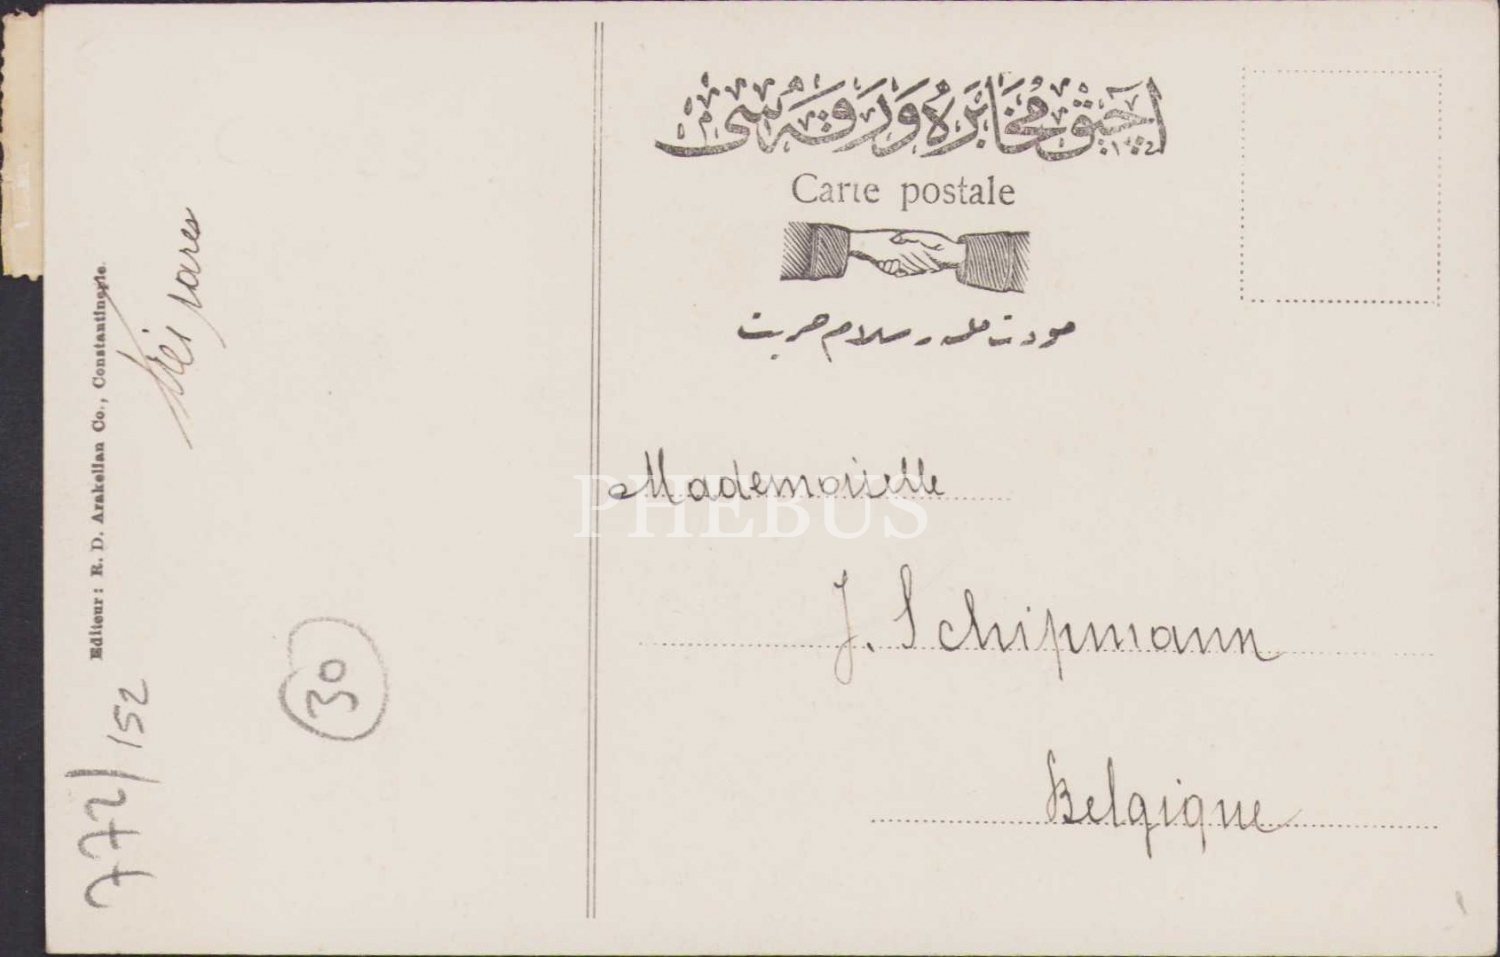 آچیق مخابره ورقه سی
Carte postale
مودت ملیه و سلام حریت
Mademoiselle
J. Schipmann
Belgique
Editeur: R. D. Arakelian Co., Constantinople.
très rares
30
772/152
PHEBUS